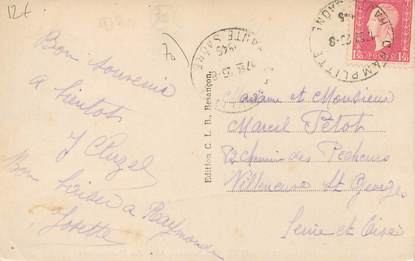 12€
70
Bon souvenir
a bientot
Bon baiser a Raymonde
Josette
Edition C. L. B., Besançon.
CHAMPLITTE
HAUTE SAONE
1945
Madame et Monsieur
Marcel Petot
Chemin des Pecheurs
Villeneuve St Georges
Seine et Oise